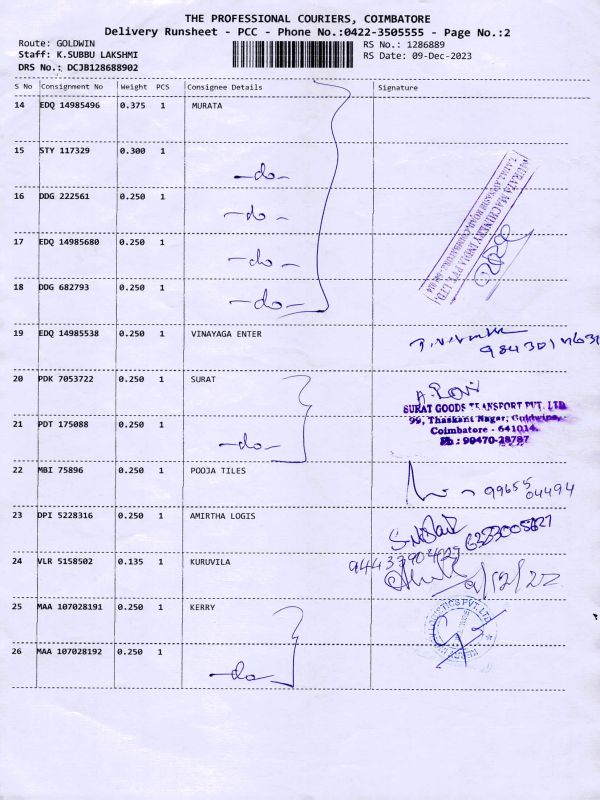 THE PROFESSIONAL COURIERS, COIMBATORE
Delivery Runsheet - PCC - Phone No.:0422-3505555 - Page No.:2
Route: GOLDWIN RS No.: 1286889
Staff: K.SUBBU LAKSHMI RS Date: 09-Dec-2023
DRS No.: DCJB128688902
S No Consignment No Weight PCS Consignee Details Signature
14 EDQ 14985496 0.375 1 MURATA
15 STY 117329 0.300 1
-do-
16 DDG 222561 0.250 1
-do-
17 EDQ 14985680 0.250 1
-do-
18 DDG 682793 0.250 1
-do-
MURATA MACHINERY INDIA PVT. LTD.
19 EDQ 14985538 0.250 1 VINAYAGA ENTER
20 PDK 7053722 0.250 1 SURAT
SURAT GOODS TRANSPORT PVT. LTD
99, Thaskant Nagar, Goldwins,
Coimbatore - 641014.
Ph : 99470-28787
21 PDT 175088 0.250 1
-do-
22 MBI 75896 0.250 1 POOJA TILES
99655 04494
23 DPI 5228316 0.250 1 AMIRTHA LOGIS
24 VLR 5158502 0.135 1 KURUVILA
25 MAA 107028191 0.250 1 KERRY
26 MAA 107028192 0.250 1
-do-